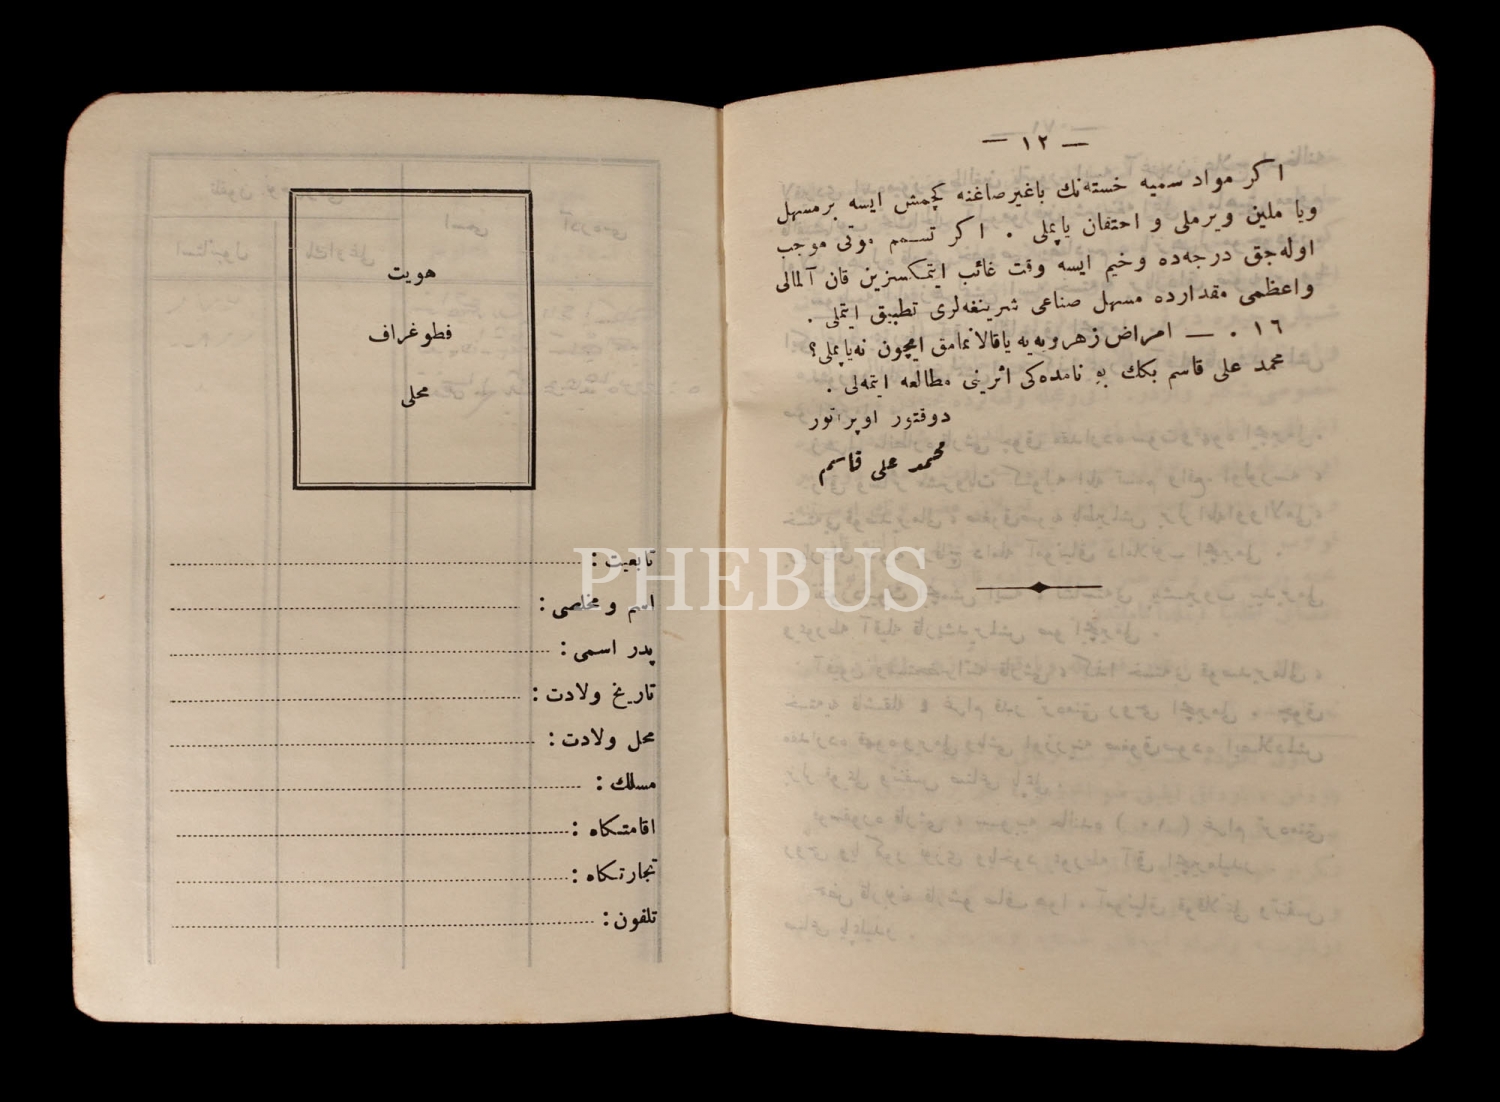 — ١٢ —
اكر مواد سمیه خسته‌نك باغیرصاغنه كچمش ایسه برمسهل
ویا ملین ویرملی و احتقان یاپملی . اكر تسمم موتی موجب
اوله‌جق درجه‌ده وخیم ایسه وقت غائب ایتمكسزین قان آلمالی
واعظمی مقدارده مسهل صناعی شرینغه‌لری تطبیق ایتملی .
١٦ . — امراض زهرویه‌یه یاقالانمامق ایچون نه‌یاپملی؟
محمد علی قاسم بكك به نامده‌كی اثرینی مطالعه ایتمه‌لی .
دوقتور اوپراتور
محمد علی قاسم
هویت
فطوغراف
محلی
تابعیت :
اسم و مخلصی :
پدر اسمی :
تاریخ ولادت :
محل ولادت :
مسلك :
اقامتكاه :
تجارتكاه :
تلفون :
PHEBUS